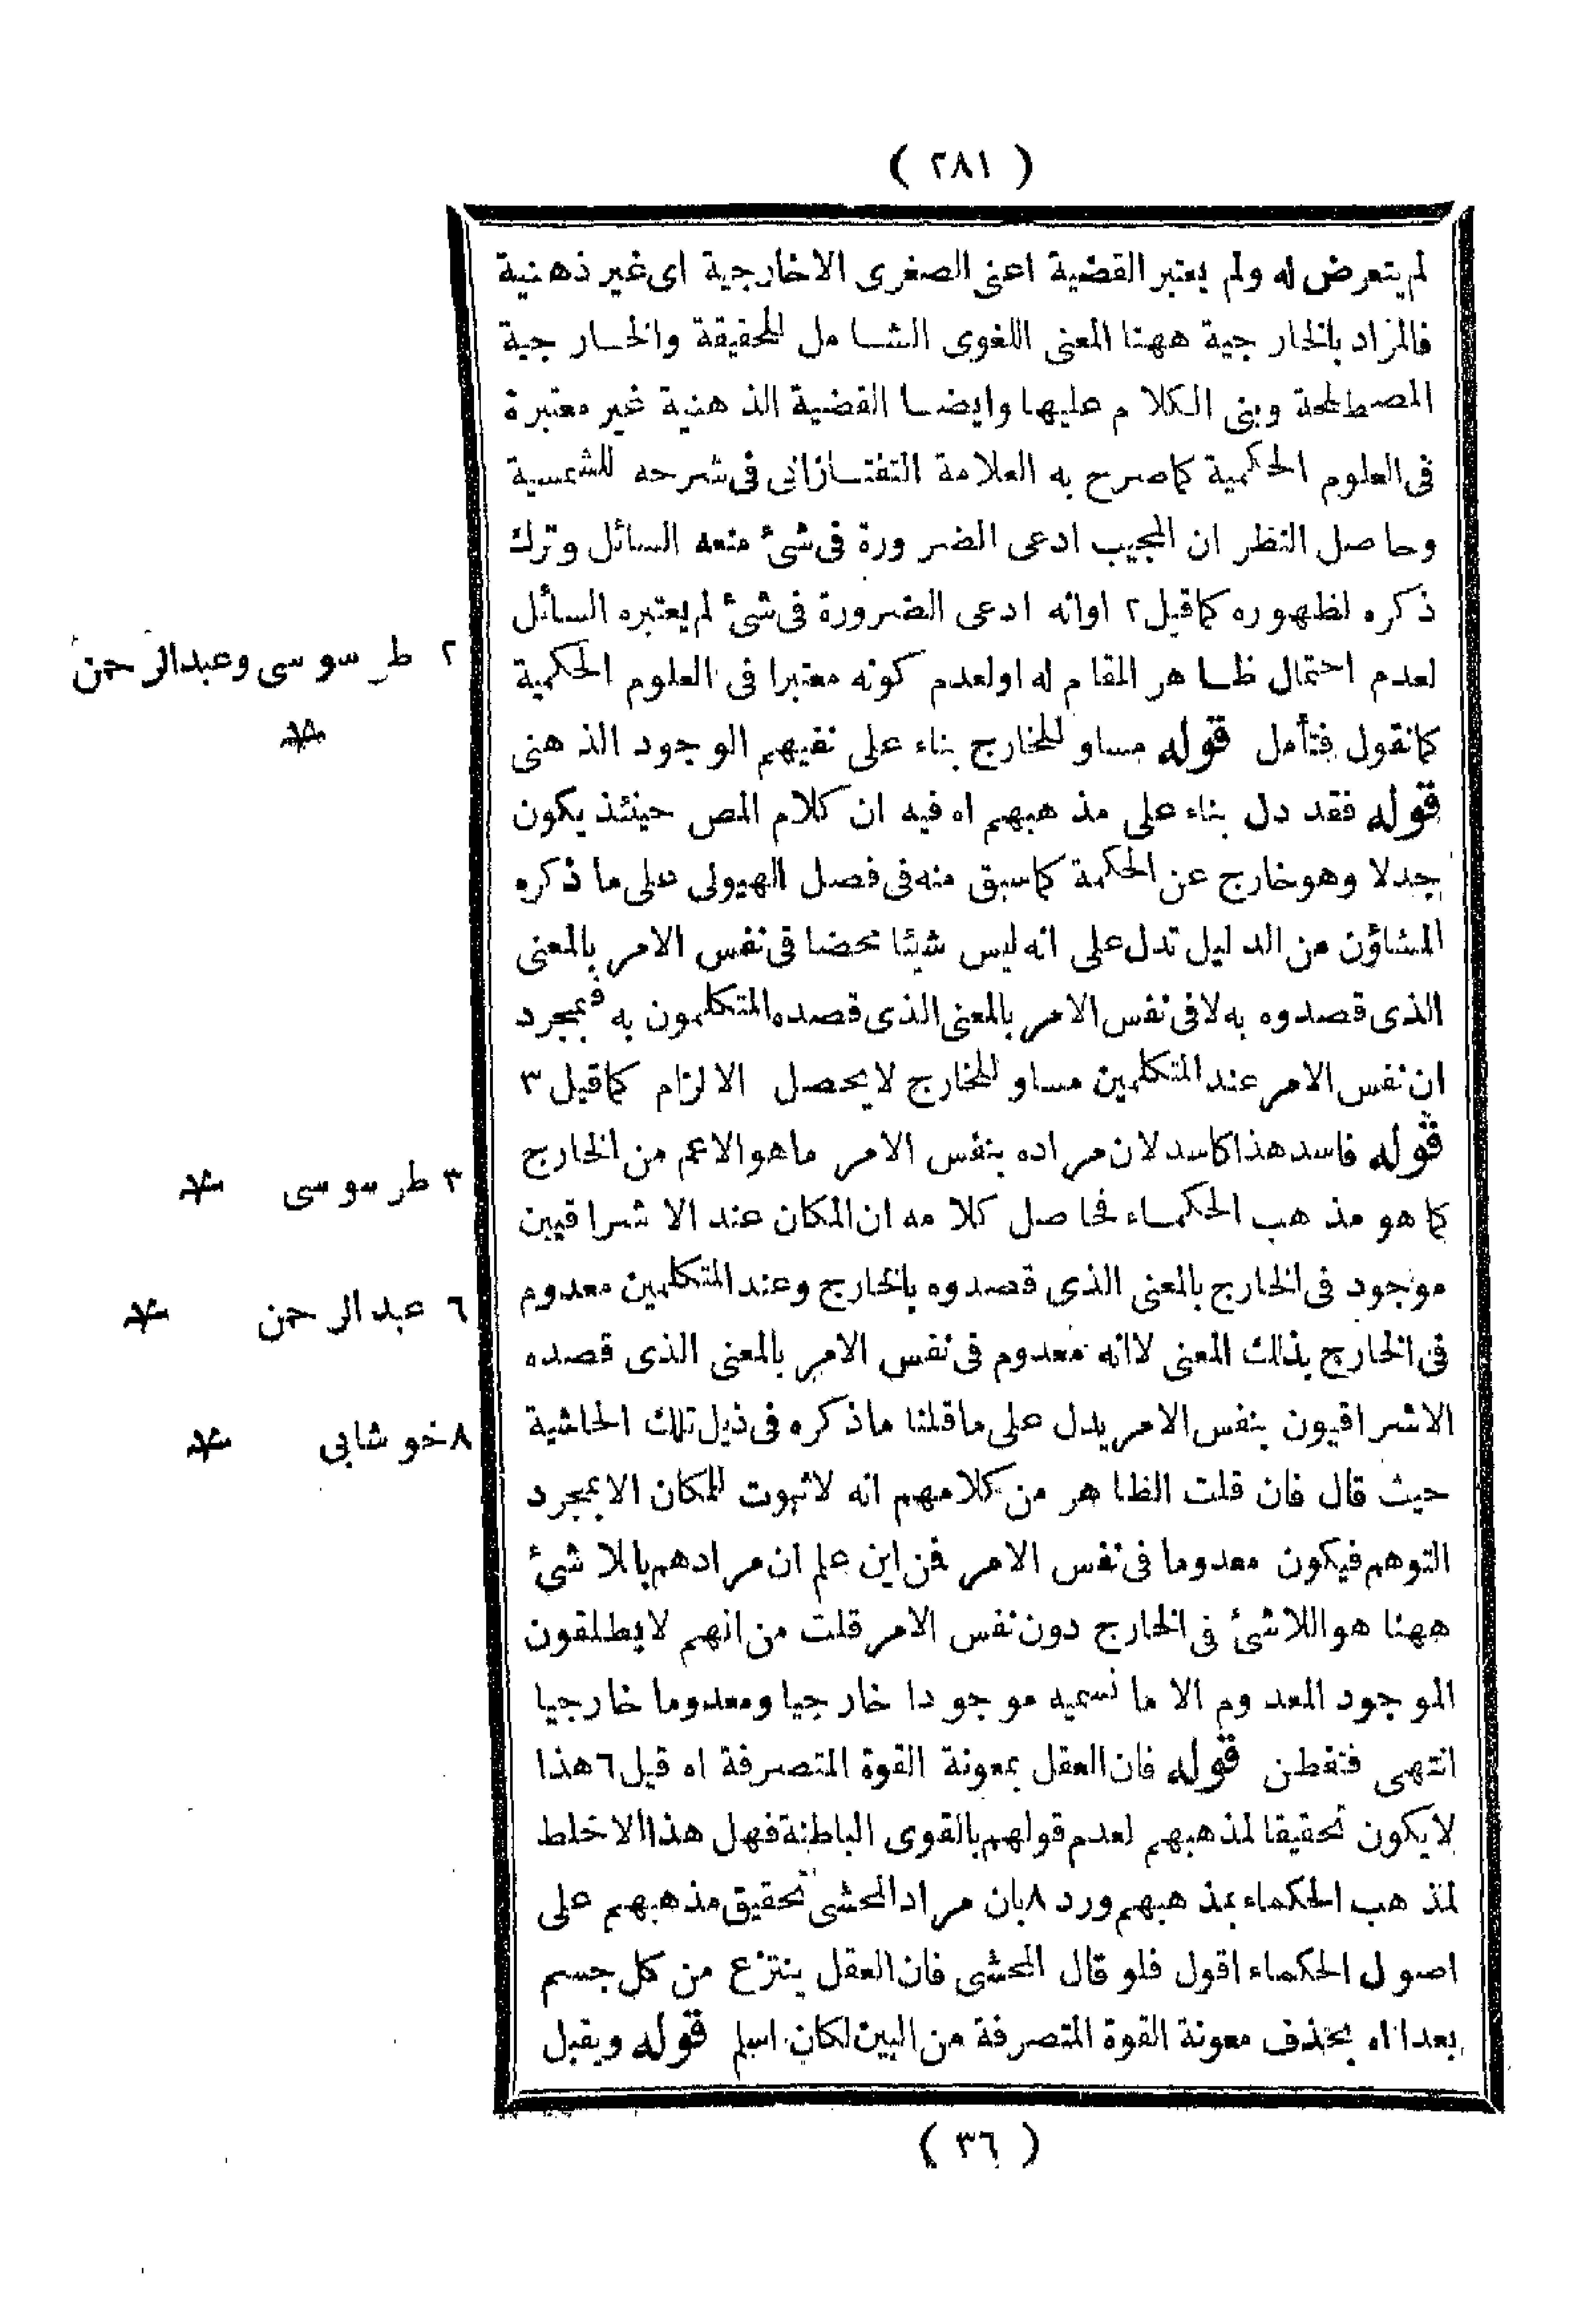 ( ٢٨١ )
لم يتعرض له ولم يعتبر القضية اعنى الصغرى الاخارجية اى غير ذهنية
فالمراد بالخارجية ههنا المعنى اللغوى الشامل للحقيقة والخارجية
المصطلحة وبنى الكلام عليها وايضا القضية الذهنية غير معتبرة
فى العلوم الحكمية كما صرح به العلامة التفتازانى فى شرحه للشمسية
وحاصل النظر ان المجيب ادعى الضرورة فى شئ منعه السائل وترك
ذكره لظهوره كما قيل ٢ اوانه ادعى الضرورة فى شئ لم يعتبره السائل
لعدم احتمال ظاهر المقام له اولعدم كونه معتبرا فى العلوم الحكمية
كما نقول فتأمل قوله مساو للخارج بناء على نفيهم الوجود الذهنى
قوله فقد دل بناء على مذهبهم اه فيه ان كلام المص حينئذ يكون
جدلا وهو خارج عن الحكمة كما سبق منه فى فصل الهيولى على ما ذكره
المشاؤن من الدليل تدل على انه ليس شيئا محضا فى نفس الامر بالمعنى
الذى قصدوه به لا فى نفس الامر بالمعنى الذى قصده المتكلمون به فبمجرد
ان نفس الامر عند المتكلمين مساو للخارج لا يحصل الالزام كما قيل ٣
قوله فاسد هذا كاسد لان مراده بنفس الامر ما هو الاعم من الخارج
كما هو مذهب الحكماء فحاصل كلامه ان المكان عند الاشراقيين
موجود فى الخارج بالمعنى الذى قصدوه بالخارج وعند المتكلمين معدوم
فى الخارج بذلك المعنى لا انه معدوم فى نفس الامر بالمعنى الذى قصده
الاشراقيون بنفس الامر يدل على ما قلنا ما ذكره فى ذيل تلك الحاشية
حيث قال فان قلت الظاهر من كلامهم انه لا ثبوت للمكان الا بمجرد
التوهم فيكون معدوما فى نفس الامر فن اين علم ان مرادهم باللا شئ
ههنا هو اللاشئ فى الخارج دون نفس الامر قلت من انهم لا يطلقون
الموجود المعدوم الا ما نسميه موجودا خارجيا ومعدوما خارجيا
انتهى فتفطن قوله فان العقل بمعونة القوة المتصرفة اه قيل ٦ هذا
لا يكون تحقيقا لمذهبهم لعدم قولهم بالقوى الباطنة فهل هذا الا خلط
لمذهب الحكماء بمذهبهم ورد ٨ بان مراد المحشى تحقيق مذهبهم على
اصول الحكماء اقول فلو قال المحشى فان العقل ينتزع من كل جسم
بعدا اه بحذف معونة القوة المتصرفة من البين لكان اسلم قوله ويقبل
٢ طرسوسى وعبدالرحمن
٣ طرسوسى
٦ عبدالرحمن
٨ خوشابى
( ٣٦ )